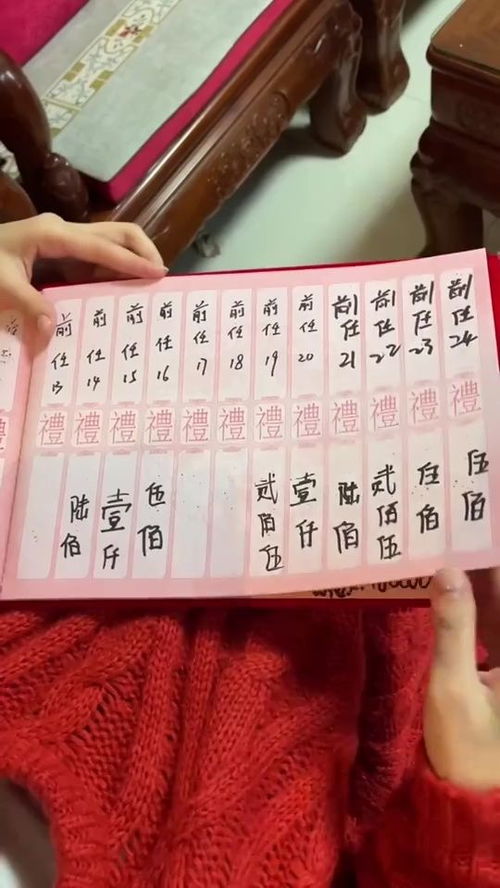 前任13 禮
前任14 禮 陆佰
前任15 禮 壹仟
前任16 禮 伍佰
前任17 禮
前任18 禮
前任19 禮 贰佰伍
前任20 禮 壹仟
前任21 禮 陆佰
前任22 禮 贰佰伍
前任23 禮 伍佰
前任24 禮 伍佰